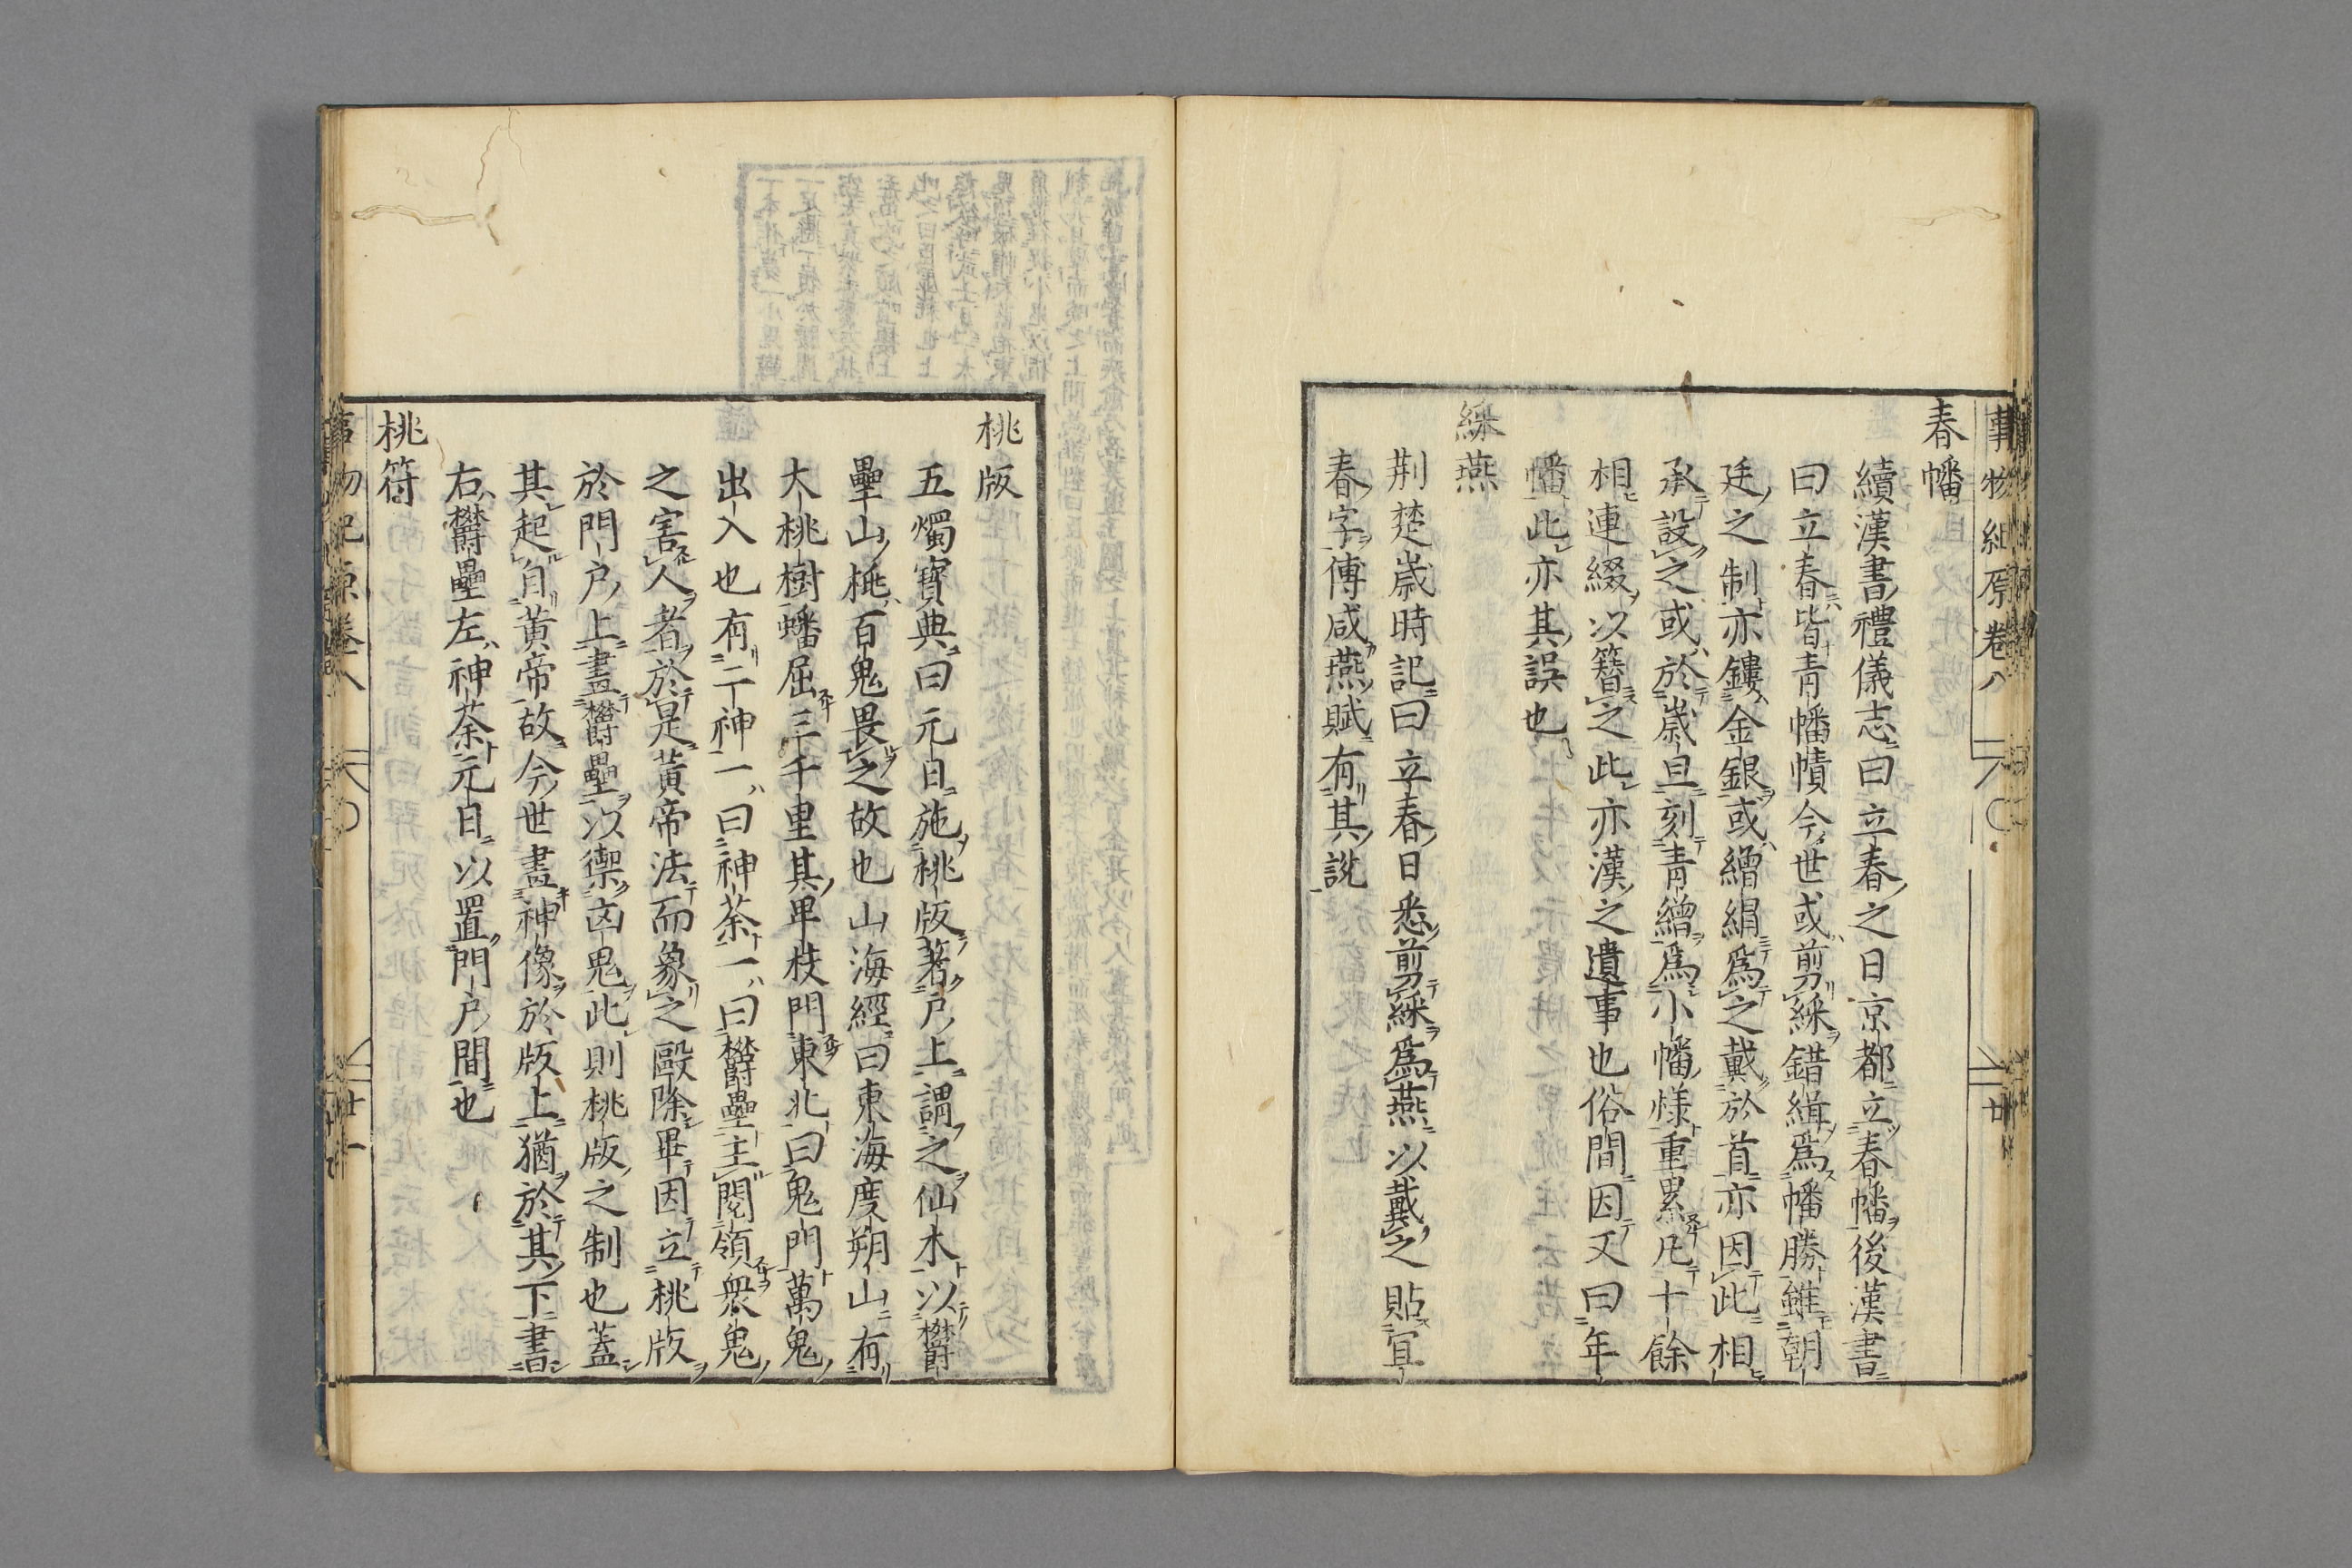 春幡
續漢書禮儀志曰立春之日京都立春幡後漢書
曰立春皆青幡幘今世或剪綵錯緝爲幡勝雖朝
廷之制亦鏤金銀或繒絹爲之戴於首亦因此相
承設之或於歲旦刻青繒爲小幡樣重累凡十餘
相連綴以簪之此亦漢之遺事也俗間因又曰年
幡此亦其誤也
綵燕
荆楚歲時記曰立春日悉剪綵爲燕以戴之貼宜
春字傅咸燕賦有其說
桃版
五燭寶典曰元日施桃版著戶上謂之仙木以欝
壘山桃百鬼畏之故也山海經曰東海度朔山有
大桃樹蟠屈三千里其卑枝門東北曰鬼門萬鬼
出入也有二神一曰神荼一曰欝壘主閱領衆鬼
之害人者於是黃帝法而象之毆除畢因立桃版
於門戶上畫欝壘以禦凶鬼此則桃版之制也蓋
其起自黃帝故今世畫神像於版上猶於其下書
右欝壘左神荼元日以置門戶間也
桃符